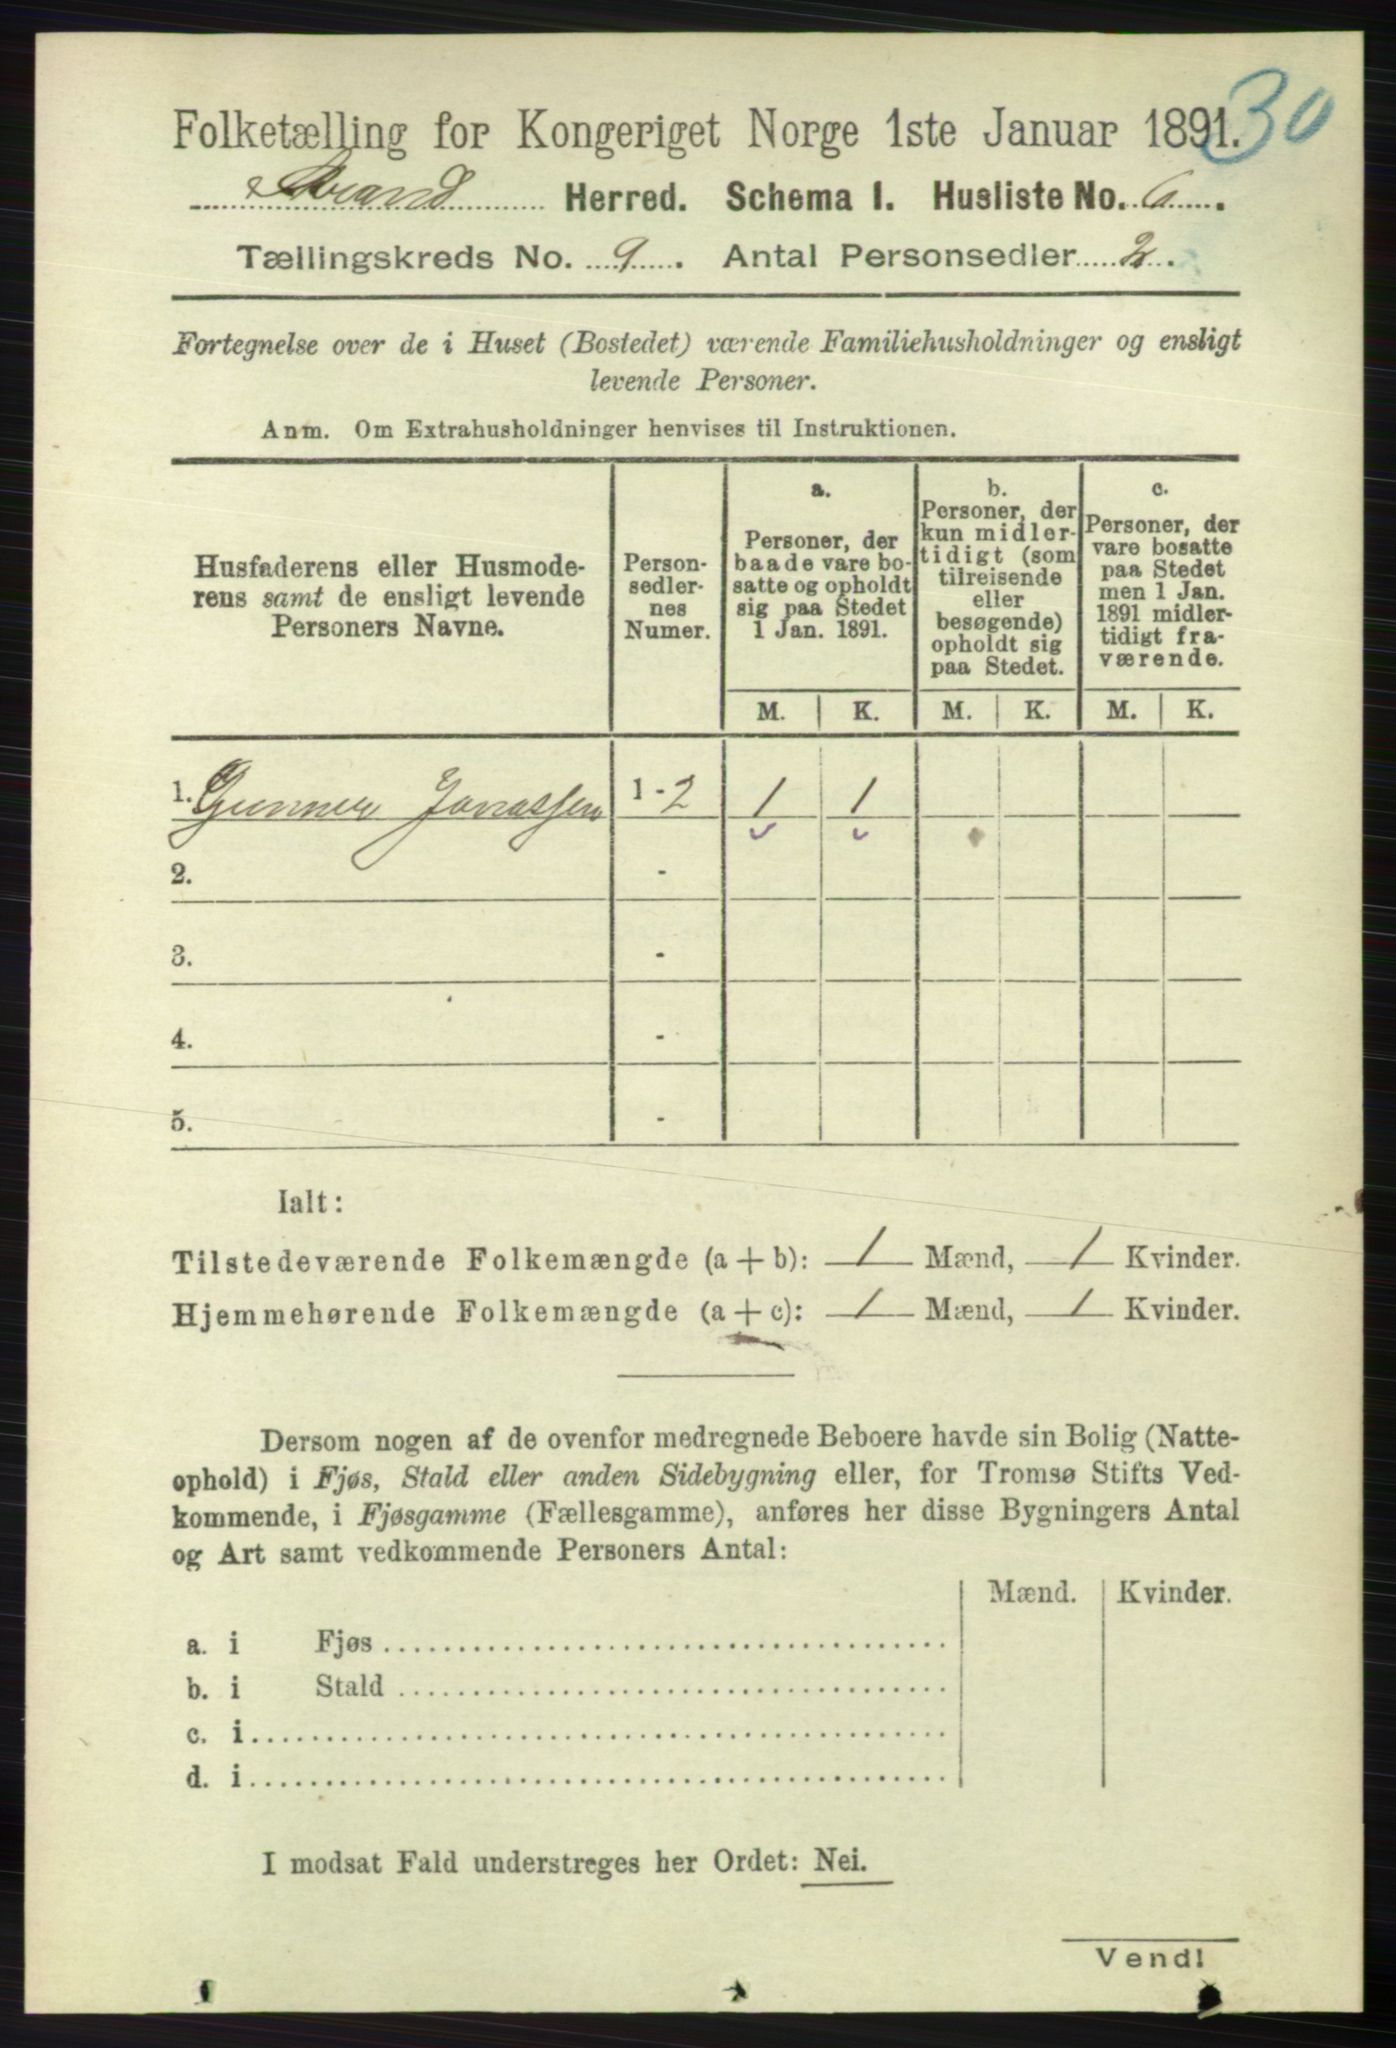 30
Folketælling for Kongeriget Norge 1ste Januar 1891.
Strand Herred. Schema I. Husliste No. 6.
Tællingskreds No. 9. Antal Personsedler 2.
Fortegnelse over de i Huset (Bostedet) værende Familiehusholdninger og ensligt
levende Personer.
Anm. Om Extrahusholdninger henvises til Instruktionen.
Husfaderens eller Husmode-
rens samt de ensligt levende
Personers Navne.
Person-
sedler-
nes
Numer.
a.
Personer, der
baade vare bo-
satte og opholdt
sig paa Stedet
1 Jan. 1891.
b.
Personer, der
kun midler-
tidigt (som
tilreisende
eller
besøgende)
opholdt sig
paa Stedet.
c.
Personer, der
vare bosatte
paa Stedet
men 1 Jan.
1891 midler-
tidigt fra-
værende.
M. K. M. K. M. K.
1. Gunner Jonassen 1-2 1 1
2. -
3. -
4. -
5. -
Ialt:
Tilstedeværende Folkemængde (a + b): 1 Mænd, 1 Kvinder.
Hjemmehørende Folkemængde (a + c): 1 Mænd, 1 Kvinder.
Dersom nogen af de ovenfor medregnede Beboere havde sin Bolig (Natte-
ophold) i Fjøs, Stald eller anden Sidebygning eller, for Tromsø Stifts Ved-
kommende, i Fjøsgamme (Fællesgamme), anføres her disse Bygningers Antal
og Art samt vedkommende Personers Antal:
Mænd. Kvinder.
a. i Fjøs
b. i Stald
c. i
d. i
I modsat Fald understreges her Ordet: Nei.
Vend!